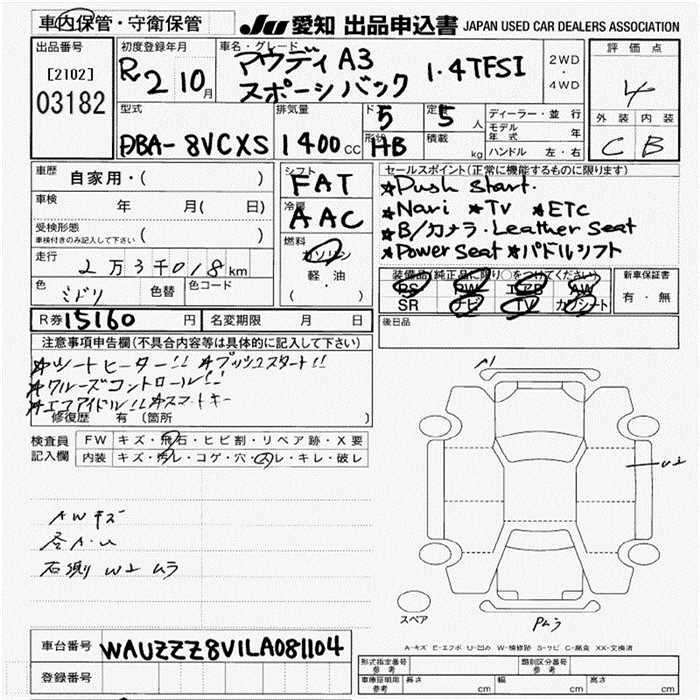 車内保管・守衛保管
JU 愛知 出品申込書 JAPAN USED CAR DEALERS ASSOCIATION
出品番号
[2102]
03182
初度登録年月
R2 10月
車名・グレード
アウディ A3
スポーツバック 1.4TFSI
2WD
・
4WD
評価点
4
外装 内装
C B
型式
DBA-8VCXS
排気量
1400cc
ドア
5
定員
5人
形状
HB
積載
kg
ディーラー・並行
モデル年式 年
ハンドル 左・右
車歴 自家用・( )
車検 年 月( 日)
受検形態
車検付きのみ記入して下さい ( )
走行 2万3千018km
色 ミドリ 色替 色コード
シフト
FAT
冷房
AAC
燃料
ガソリン
軽・油
( )
セールスポイント(正常に機能するものに限ります)
★Push start.
★Navi ★TV ★ETC
★B/カメラ・Leather seat
★Power seat ★パドルシフト
装備品(純正品に限り○をつけてください)
PS PW エアB AW
SR ナビ TV カワシート
新車保証書
有・無
後日品
R券 15160円 名変期限 月 日
注意事項申告欄(不具合内容等は具体的に記入して下さい)
★シートヒーター!! ★プッシュスタート!!
★クルーズコントロール!!
★エコアイドル!! ★スマートキー
修復歴 有(箇所 )
検査員記入欄
FW キズ・飛石・ヒビ割・リペア跡・X要
内装 キズ・汚レ・コゲ・穴・スレ・キレ・破レ
AWキズ
各A・U
右側 W2 ムラ
U2
スペア
Pムラ
A-キズ E-エクボ U-凹み W-補修跡 S-サビ C-腐食 XX-交換済
車台番号 WAUZZZ8V1LA081104
登録番号
形式指定番号 参考
類別区分番号 参考
車庫証明用 参考 長さ cm 幅 cm 高さ cm